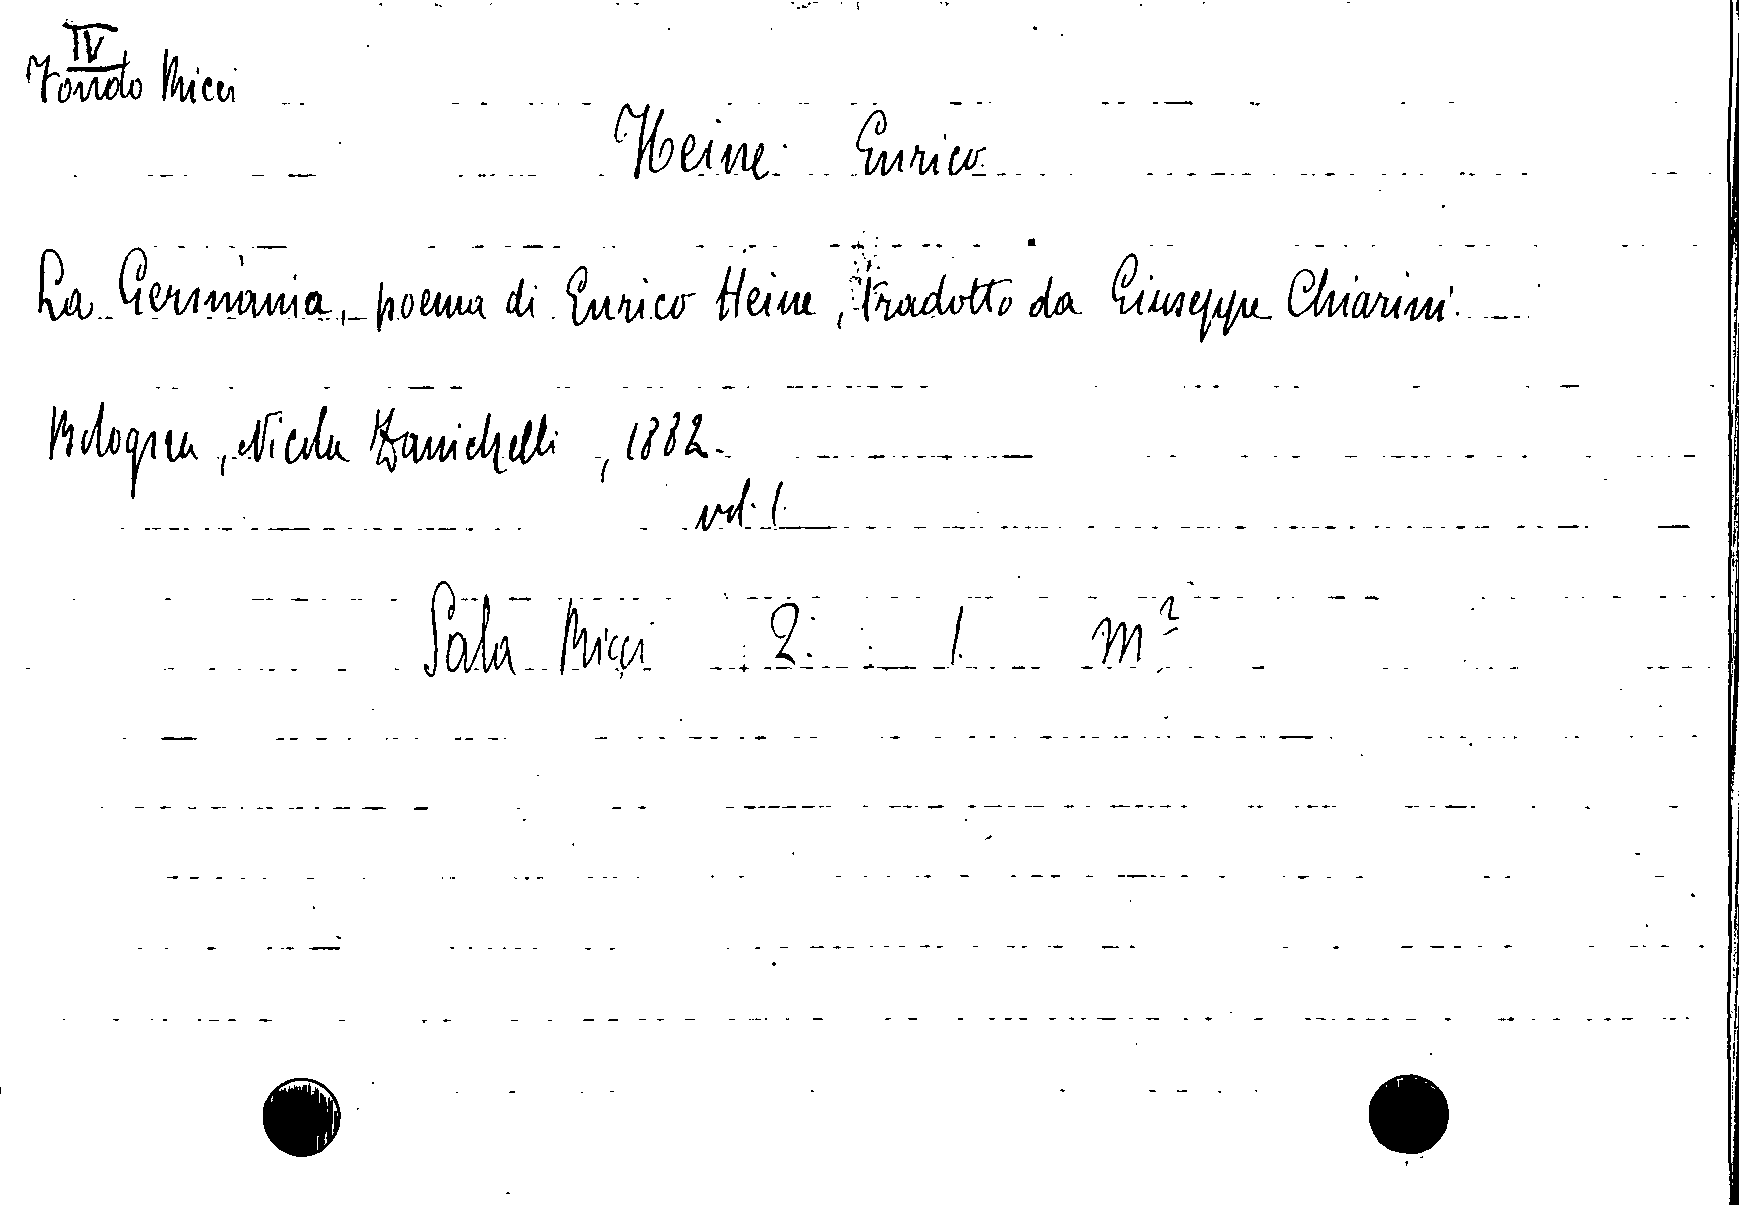 IV
Fondo Ricci
Heine Enrico
La Germania, poema di Enrico Heine, tradotto da Giuseppe Chiarini.
Bologna, Nicola Zanichelli, 1882.
vol. 1.
Sala Ricci 2. 1. m²